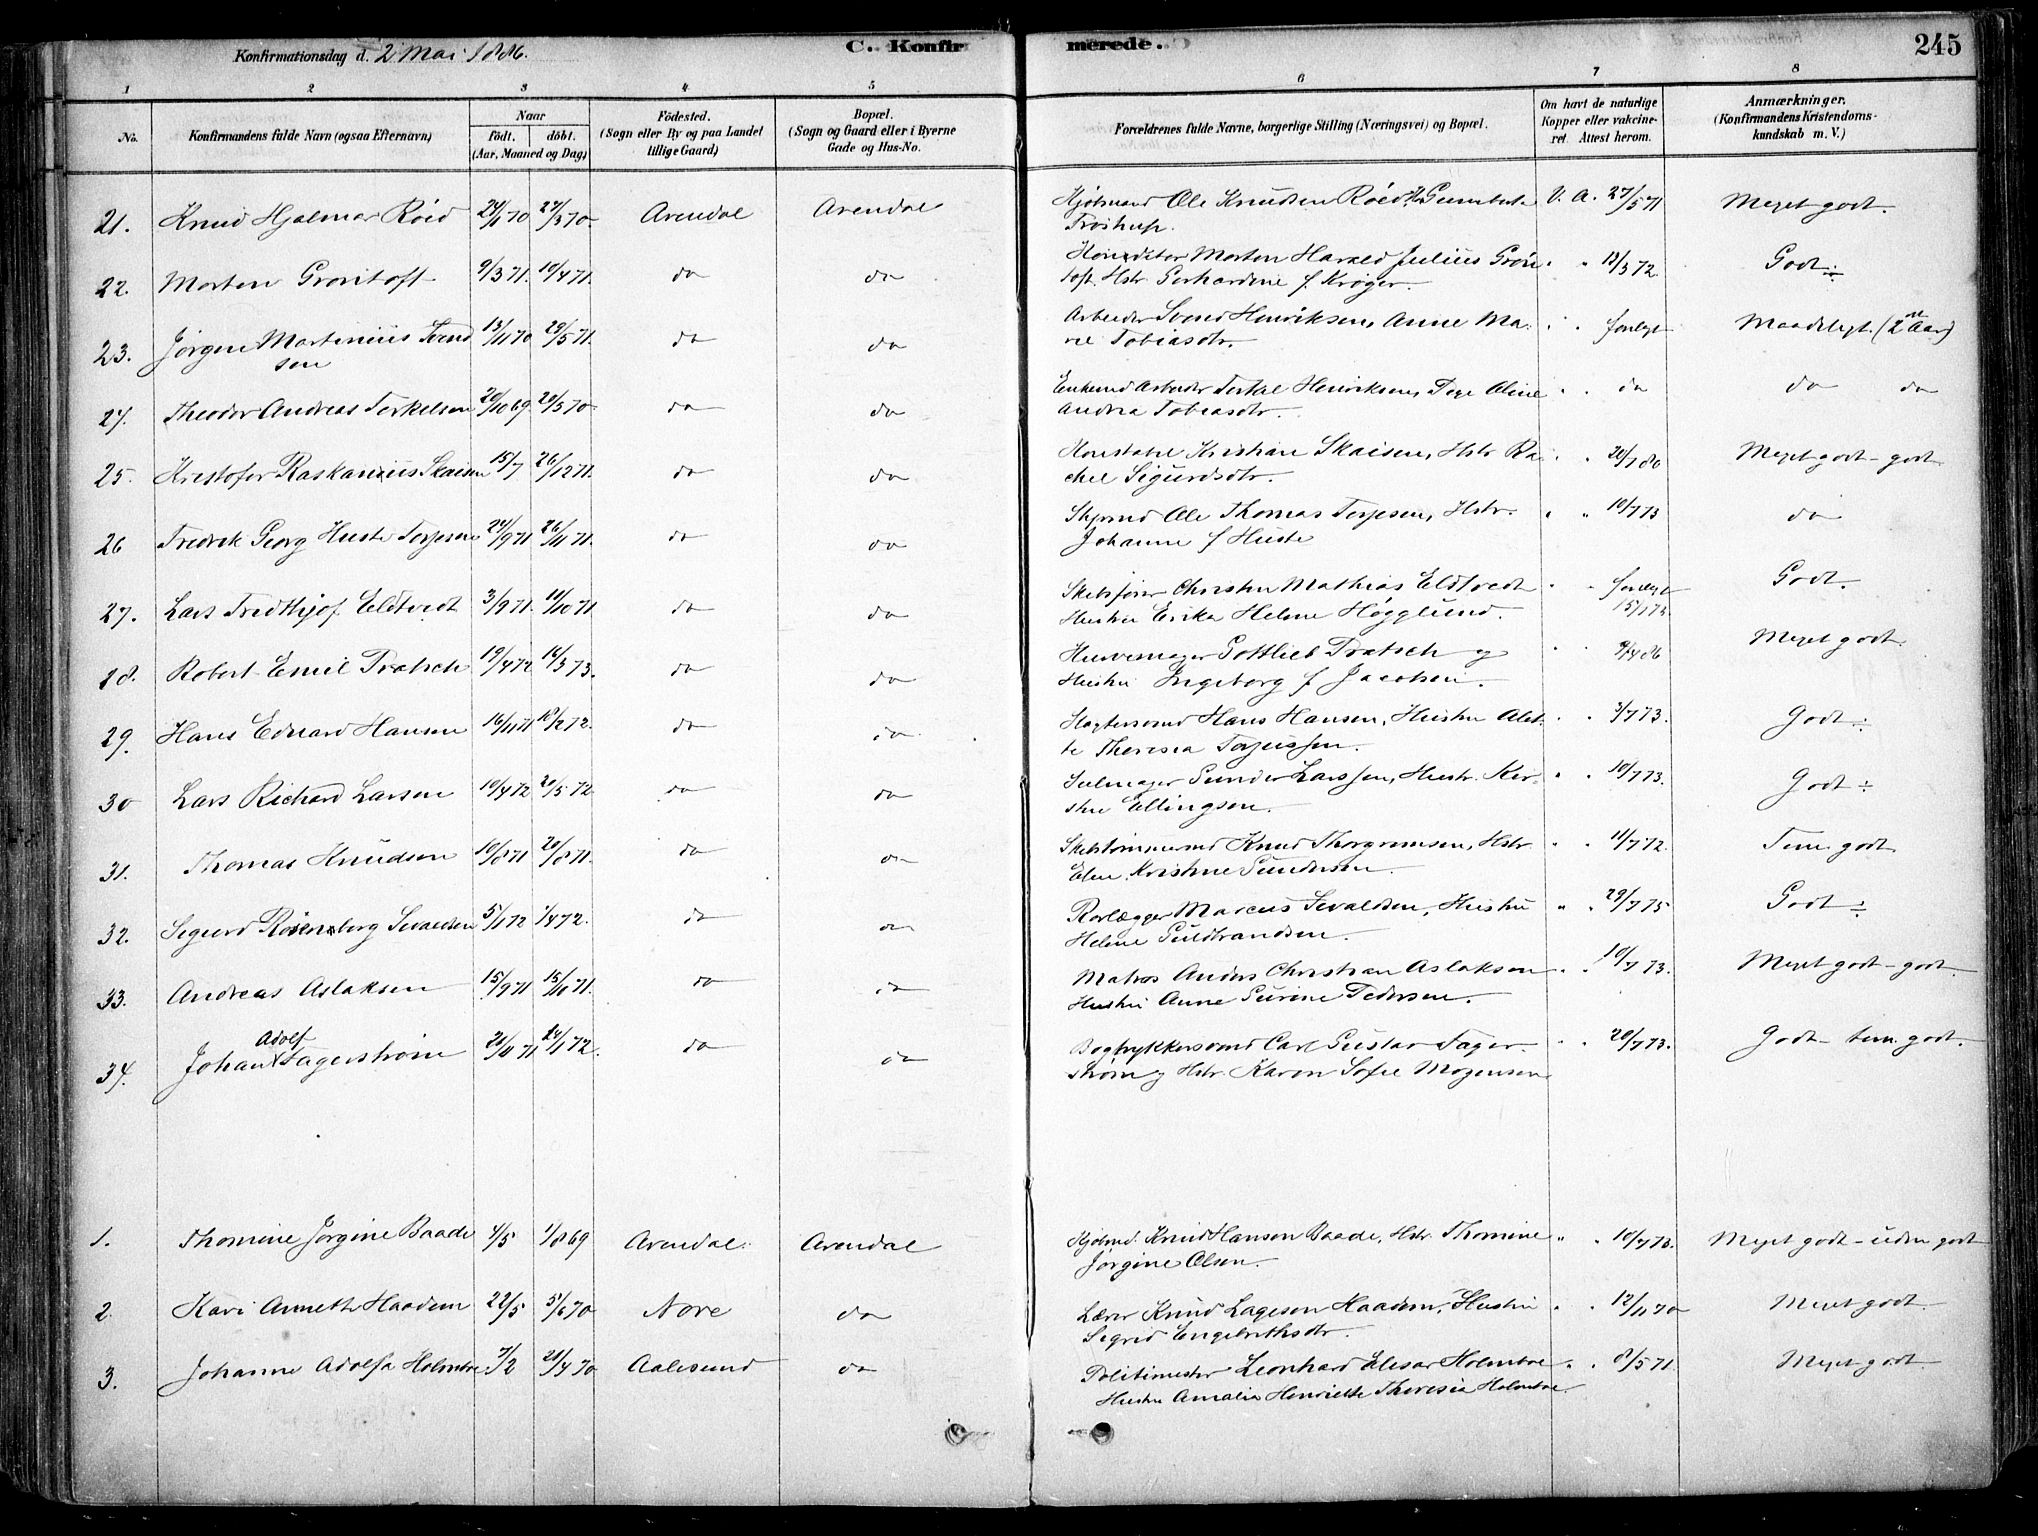 Konfirmationsdag d. 2 Mai 1886. C. Konfirmerede. 245
1 2 3 4 5 6 7 8
No. Konfirmandens fulde Navn (ogsaa Efternavn) Naar födt. döbt. (Aar, Maaned og Dag) Födested. (Sogn eller By og paa Landet tillige Gaard) Bopæl. (Sogn og Gaard eller i Byerne Gade og Hus-No. Forældrenes fulde Navne, borgerlige Stilling (Næringsvei) og Bopæl. Om havt de naturlige Kopper eller vakcineret. Attest herom. Anmærkninger. (Konfirmandens Kristendomskundskab m. V.)
21. Knud Hjalmar Röed 27/3 70. Arendal Arendal Ole Knudsen Röed V. A. 27/5 71 Meget godt.
22. Morten Grontoft 9/3 71. 10/4 71. do do Morten Harald Julius Grön
toft. Hstr. Gerhardine f. Kröger. " " 13/3 72. Godt ÷
23. Jörgen Martinius Svend 13/11 70 29/5 71. do do Arbeider Svend Henriksen, Anne Ma-
sen rie Tobiasdtr. " " Maadeligt (2 Aar)
24. Theodor Andreas Terkelsen 20/10 69. 20/5 70. do do Arbeider Henriksen, Aline " " do do do
Andrea Tobiasdtr.
25. Kristofer Skaisen 15/7 26/12 71. do do Konstabel Kristian Skaisen, Hstr. Ra- " " 20/7 80 Meget godt - godt
chel Sigurdsdtr.
26 Fredrik Georg Huste Torjesen 24/9 71 26/11 71. do do Ole Thomas Torjesen, Hstr. " " 10/7 73 do
Johanne f Huste
27. Lars Fredthjof Eldtvedt 3/9 71. 11/10 71. do do Skibsförer Christen Mathias Eldtvedt " " Godt.
Hustru Erika Helene Högglund.
28. Robert Emil Tratsch 19/4 72 16/3 73. do do Gottlieb Tratsch og " " Meget godt.
Hustru Ingeborg f Jacobsen.
29. Hans Edvard Hansen 16/11 71 18/2 72. do do Hans Hansen, Hustru Alet- " " 3/7 73. Godt ÷
te Theresia Torjussen.
30 Lars Richard Larsen 10/4 72 20/5 72 do do Seilmager Gunder Larssen, Hustr. Kir- " " 10/7 73. Godt ÷
stne Ellingsen.
31. Thomas Knudsen 10/8 71 20/8 71. do do Knud Thorgrimsen, Hstr. " " 11/7 72. Tem. godt
Elen Kristine Gundersen.
32. Sigurd Rosenberg Sevaldsen 5/1 72 1/4 72. do do Rorlægger Marcus Sevaldsen, Hustru " " 29/7 75 Godt ÷
Helene Guldbrandsen.
33. Andreas Aslaksen 15/9 71 15/10 71. do do Matros Anders Christian Aslaksen " " 10/7 73. Meget godt - godt.
Hustru Anne Gurine Pedersen.
34. Johan Adolf Fagerström 21/11 71 14/1 72. do do Bogtrykkersvend Carl Gustav Fager- " " 20/7 73. Godt - tem. godt.
ström og Hstr. Karen Sofie Mogensen
1. Thomine Jörgine Baade 4/5 1/8 69 Arendal. Arendal Knud Hanson Baade, Hstr. Thomine " " 10/7 73. Meget godt - uden godt
Jörgine Olsen.
2. Kari Annette Haadem 22/5 5/6 70 Nore do Lærer Knud Lageson Haadem, Hustru " " 12/11 70 Meget godt.
Sigrid Engebrethsdtr.
3. Johanne Adolfa Holmboe 7/2 21/4 70 Aalesund do Politimester Leonhard Elisar Holmboe " " 8/5 71 Meget godt.
Hustru Amalia Henriette Theresia Holmboe.